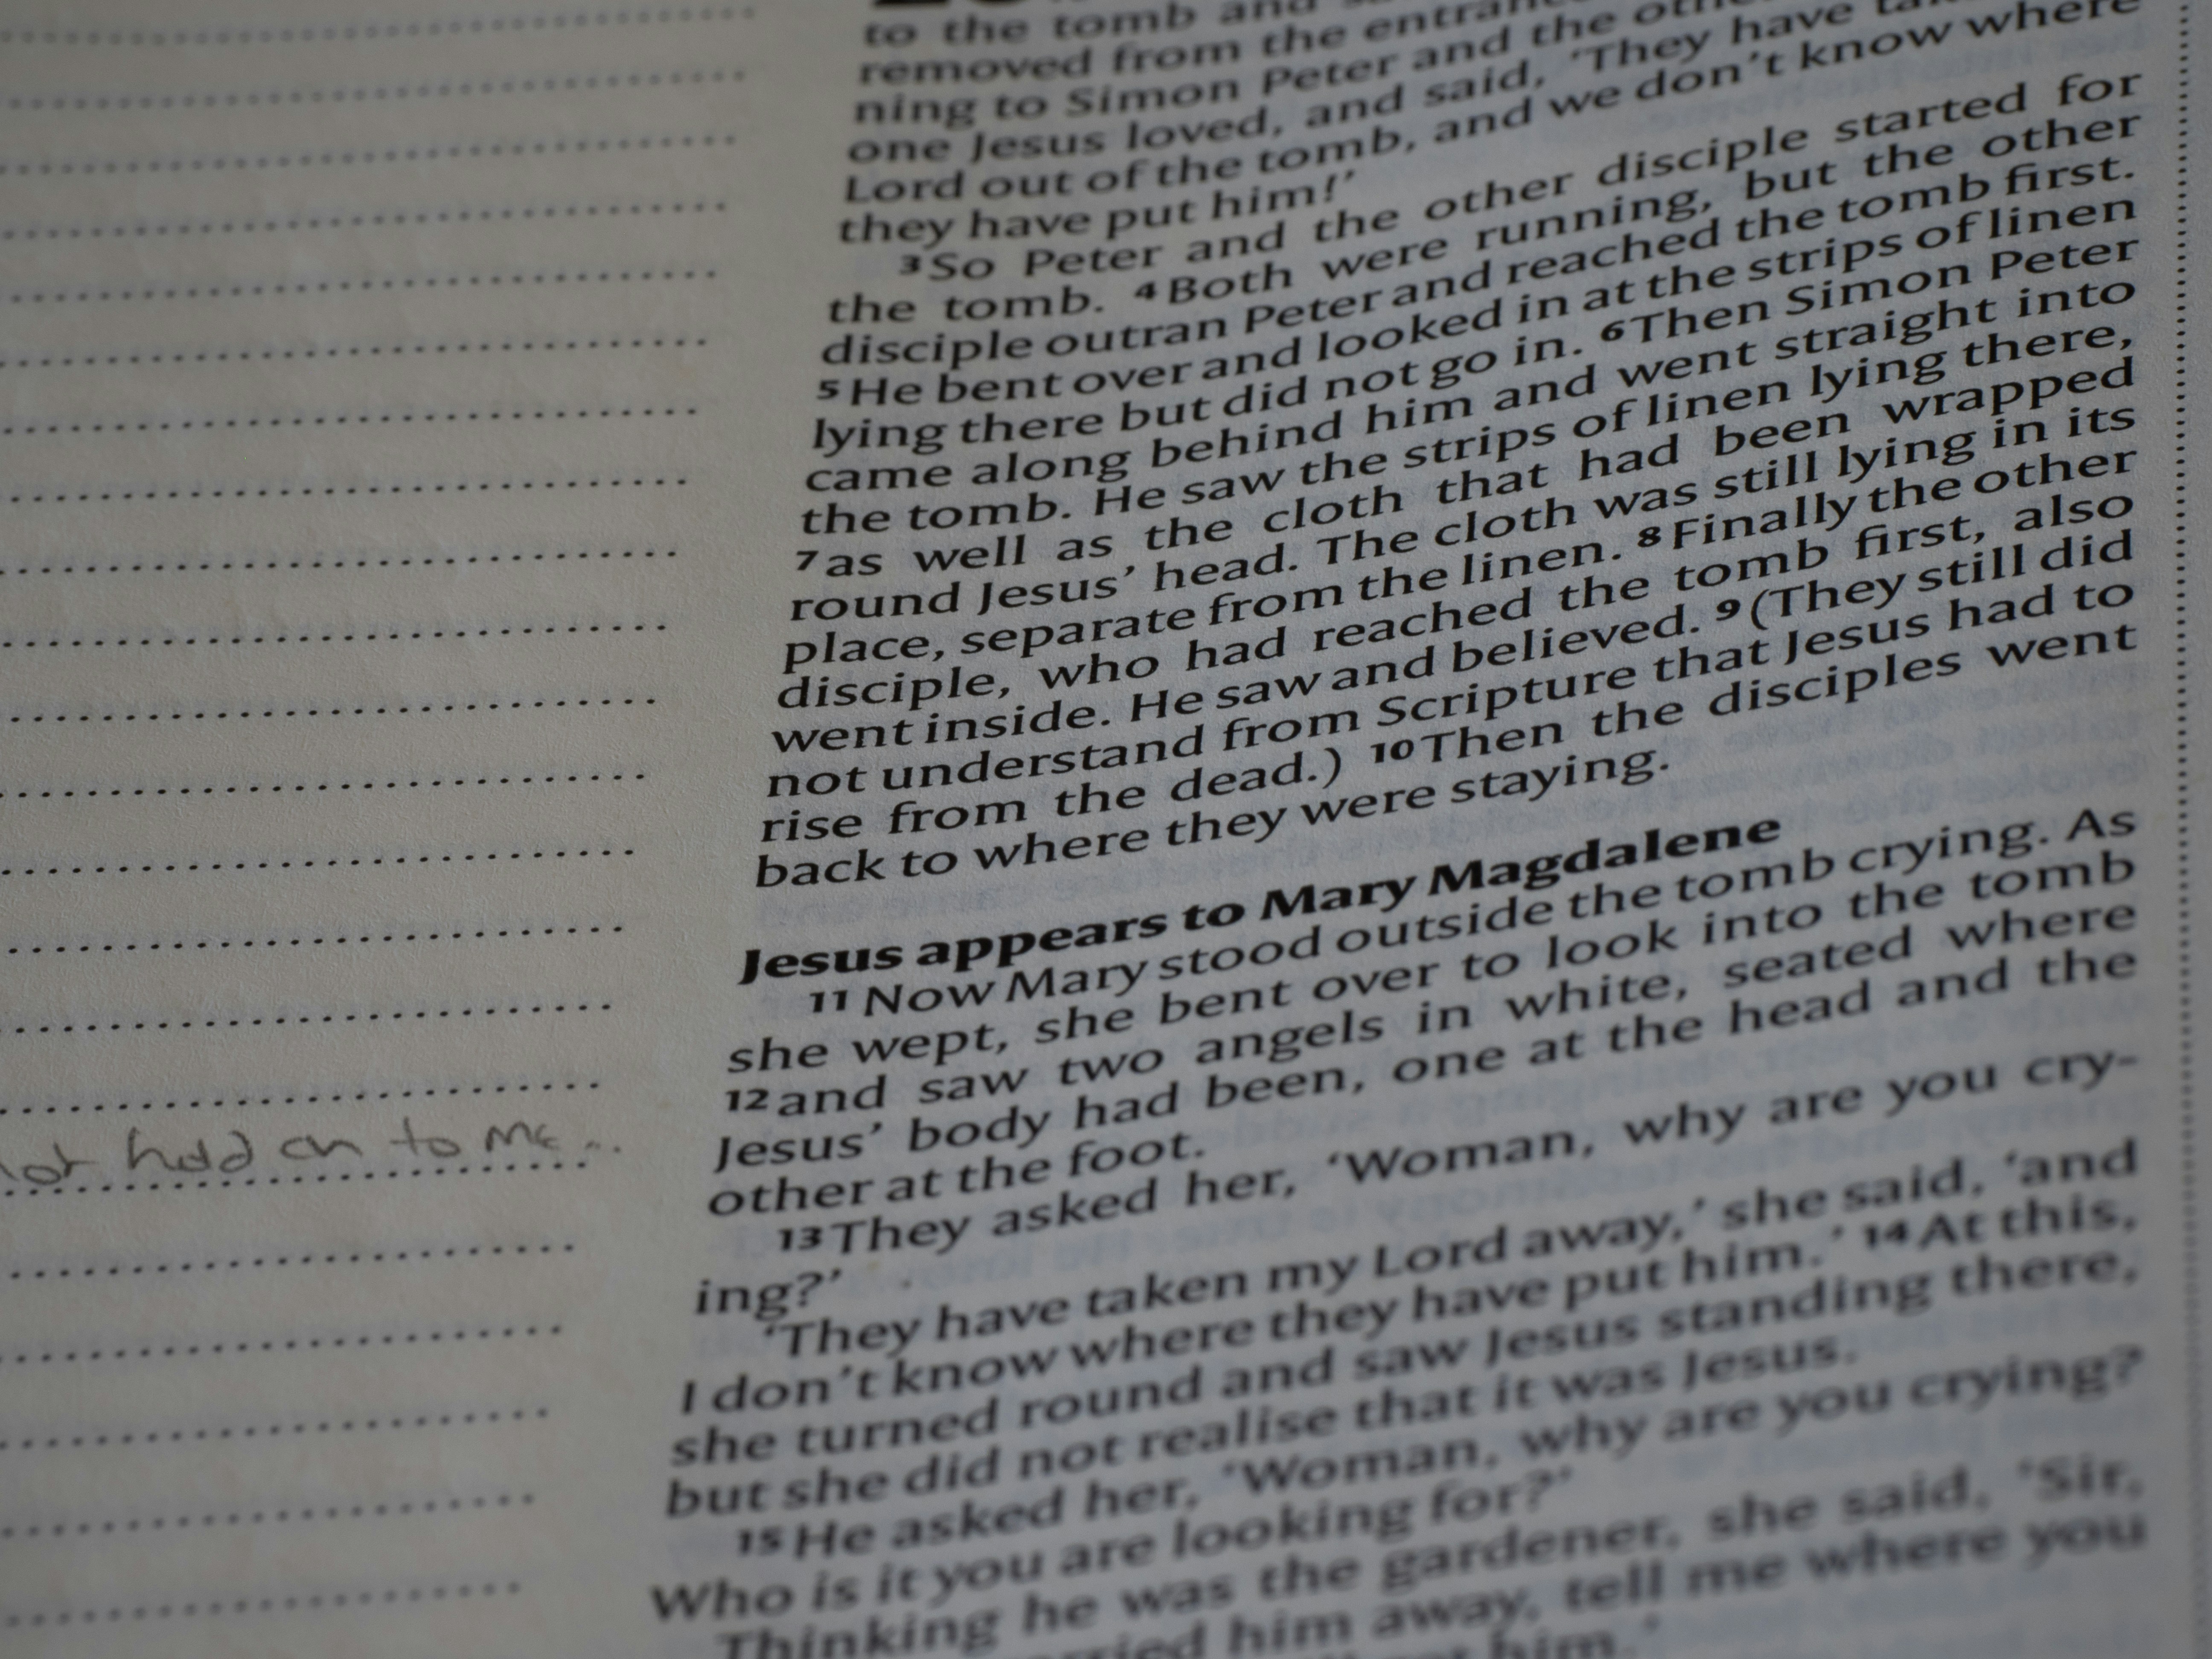 to the tomb and
removed from the
ning to Simon Peter and the
one Jesus loved, and said, 'They have
Lord out of the tomb, and we don't know where
they have put him!'
3 So Peter and the other disciple started for
the tomb. 4 Both were running, but the other
disciple outran Peter and reached the tomb first.
5 He bent over and looked in at the strips of linen
lying there but did not go in. 6 Then Simon Peter
came along behind him and went straight into
the tomb. He saw the strips of linen lying there,
7 as well as the cloth that had been wrapped
round Jesus' head. The cloth was still lying in its
place, separate from the linen. 8 Finally the other
disciple, who had reached the tomb first, also
went inside. He saw and believed. 9 (They still did
not understand from Scripture that Jesus had to
rise from the dead.) 10 Then the disciples went
back to where they were staying.
Jesus appears to Mary Magdalene
11 Now Mary stood outside the tomb crying. As
she wept, she bent over to look into the tomb
12 and saw two angels in white, seated where
Jesus' body had been, one at the head and the
other at the foot.
13 They asked her, 'Woman, why are you cry-
ing?'
'They have taken my Lord away,' she said, 'and
I don't know where they have put him.' 14 At this,
she turned round and saw Jesus standing there,
but she did not realise that it was Jesus.
15 He asked her, 'Woman, why are you crying?
Who is it you are looking for?'
Thinking he was the gardener, she said, 'Sir,
him away, tell me where you
him.'
hold on to me...